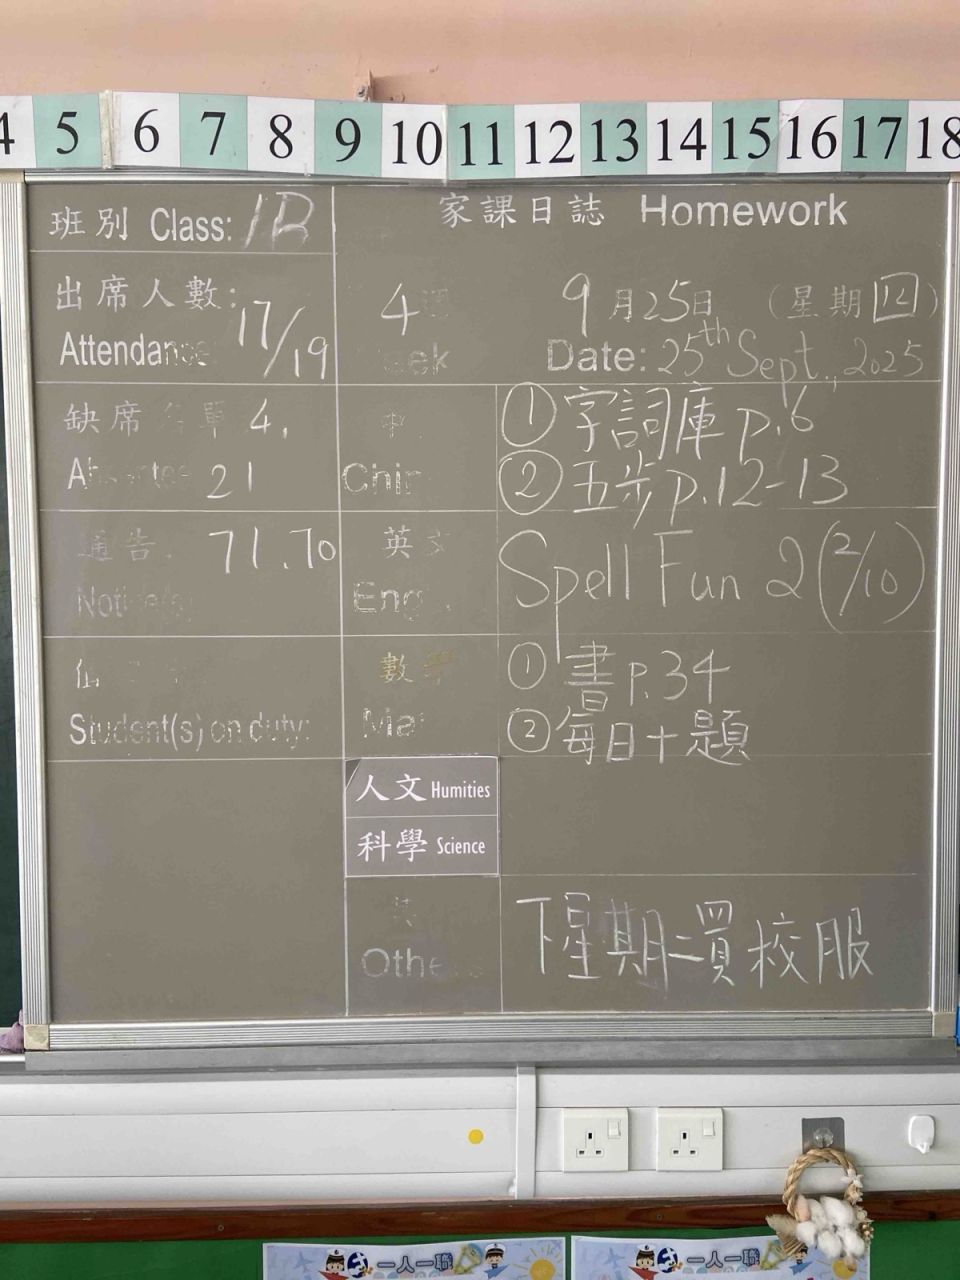 4 5 6 7 8 9 10 11 12 13 14 15 16 17 18
班別 Class: 1B
家課日誌 Homework
出席人數: 17/19
4
9月25日 (星期四)
Date: 25th Sept., 2025
缺席 4,
21
① 字詞庫 p.6
② 五步 p.12-13
通告 71.70
英
Spell Fun 2 (2/10)
Student(s) on duty:
數
① 書 p.34
② 每日十題
人文 Humities
科學 Science
下星期二買校服
一人一職
一人一職